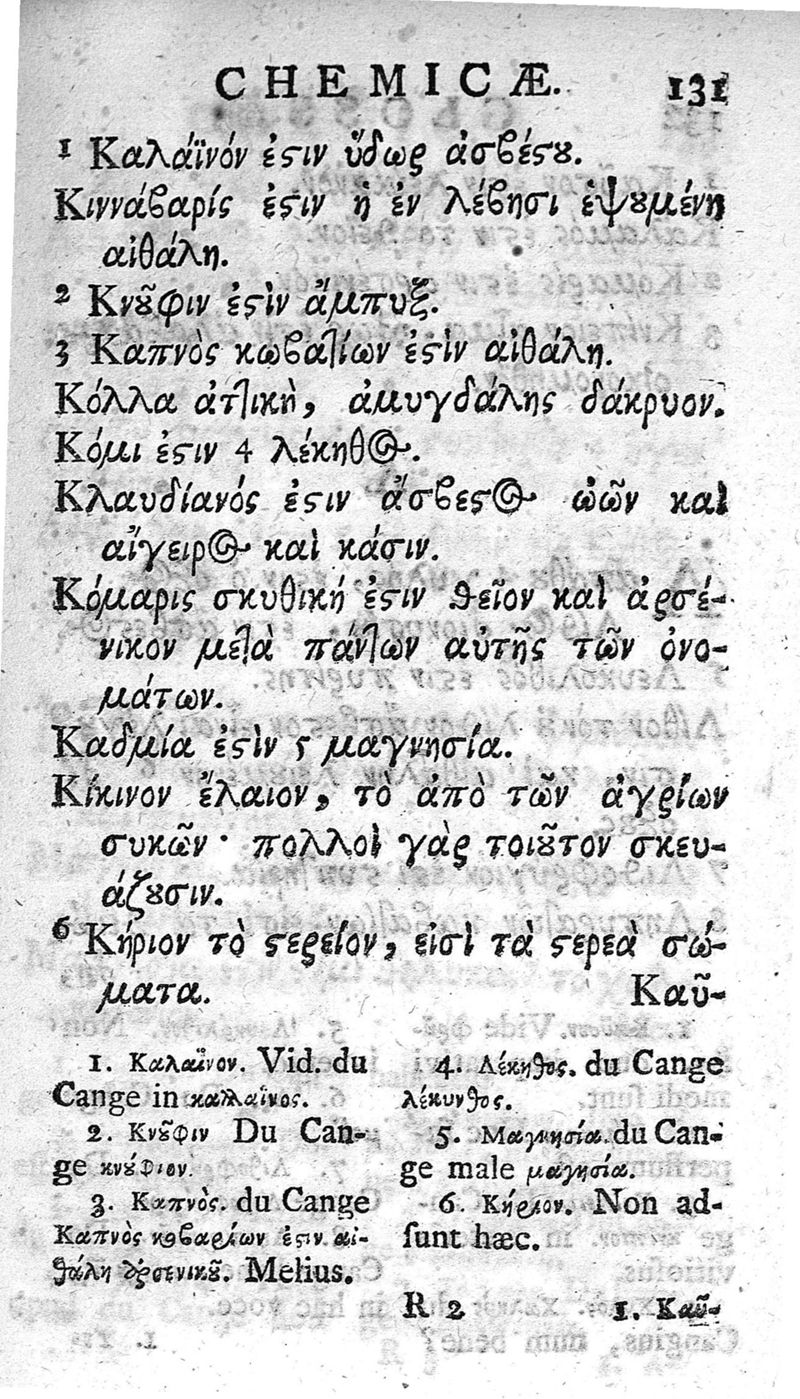 CHEMICÆ. 131
1 Καλάϊνόν ἐϛιν ὕδωρ ἀσβέϛȣ.
Κιννάβαρίς ἐϛιν ἡ ἐν λέβησι ἑψȣμένη
αἰθάλη.
2 Κνȣ͂φιν ἐϛὶν ἄμπυξ.
3 Καπνὸς κωβατίων ἐϛὶν αἰθάλη.
Κόλλα ἀττικὴ, ἀμυγδάλης δάκρυον.
Κόμι ἐϛιν 4 λέκηθος.
Κλαυδίανός ἐϛιν ἄσβεϛος ὠῶν καὶ
αἴγειρος καὶ κάσιν.
Κόμαρις σκυθική ἐϛιν θεῖον καὶ ἀρσέ-
νικον μετὰ πάντων αὐτῆς τῶν ὀνο-
μάτων.
Καδμία ἐϛὶν 5 μαγνησία.
Κίκινον ἔλαιον, τὸ ἀπὸ τῶν ἀγρίων
συκῶν · πολλοὶ γὰρ τοιȣ͂τον σκευ-
άζȣσιν.
6 Κήριον τὸ ϛερεῖον, εἰσὶ τὰ ϛερεὰ σώ-
ματα. Καῦ-
1. Καλαϊνον. Vid. du
Cange in καλλαΐνος.
2. Κνȣ͂φιν Du Can-
ge κνȣ́φιον.
3. Καπνὸς. du Cange
Καπνὸς κοβαρίων ἐϛιν αἰ-
θάλη ἀρσενικȣ͂. Melius.
4. Λέκηθος. du Cange
λέκυνθος.
5. Μαγνησία. du Can-
ge male μαγησία.
6. Κήριον. Non ad-
sunt hæc.
R 2 1. Καῦ-